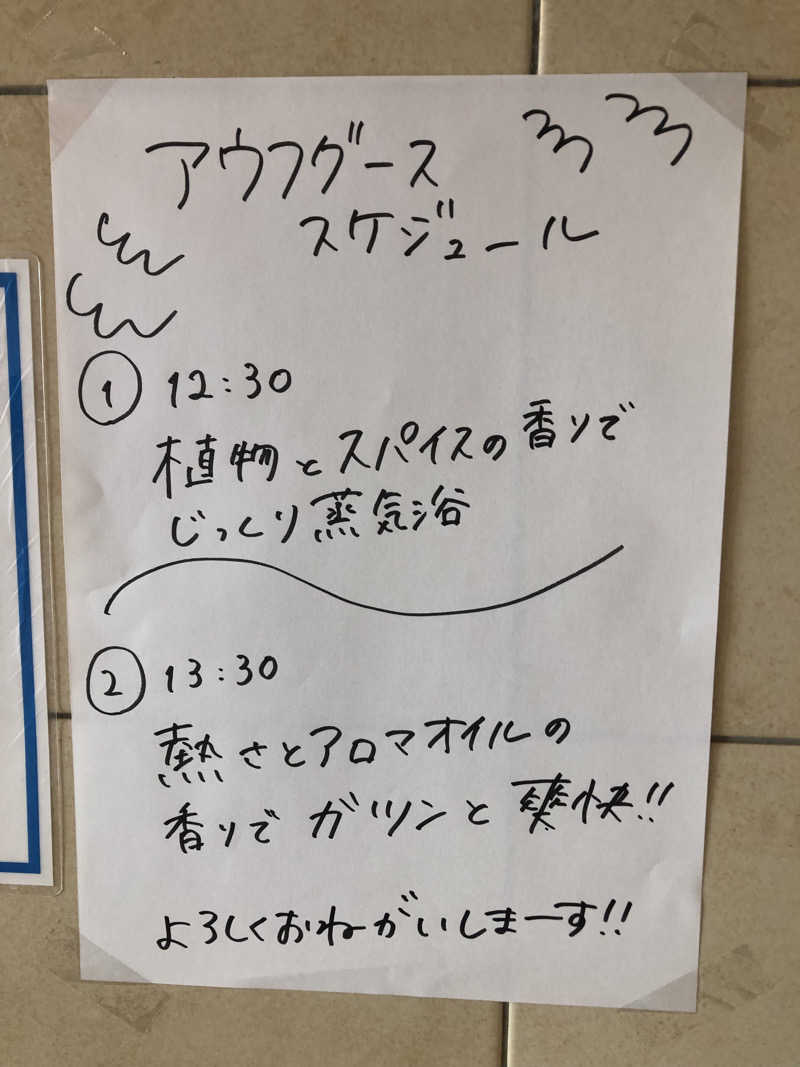 アウフグース
スケジュール
① 12:30
植物とスパイスの香りで
じっくり蒸気浴
② 13:30
熱さとアロマオイルの
香りでガツンと爽快!!
よろしくおねがいしまーす!!